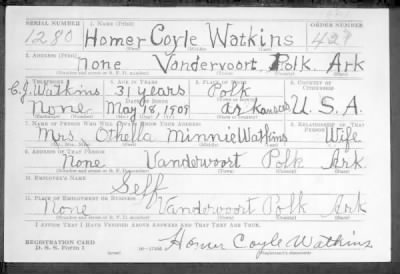 SERIAL NUMBER 1. NAME (Print) ORDER NUMBER
1280 Homer Coyle Watkins 429
(First) (Middle) (Last)
2. ADDRESS (Print)
None Vandervoort Polk Ark
(Number and street or R. F. D. number) (Town) (County) (State)
3. TELEPHONE 4. AGE IN YEARS 5. PLACE OF BIRTH 6. COUNTRY OF CITIZENSHIP
C.J. Watkins 31 years Polk
DATE OF BIRTH
None May 14, 1909 Arkansas U.S.A.
7. NAME OF PERSON WHO WILL ALWAYS KNOW YOUR ADDRESS 8. RELATIONSHIP OF THAT PERSON
Mrs. Othella Minnie Watkins Wife
9. ADDRESS OF THAT PERSON
None Vanderwoort Polk Ark
(Number and street or R. F. D. number) (Town) (County) (State)
10. EMPLOYER'S NAME
Self
11. PLACE OF EMPLOYMENT OR BUSINESS
None Vandervoort Polk Ark
(Number and street or R. F. D. number) (Town) (County) (State)
I AFFIRM THAT I HAVE VERIFIED ABOVE ANSWERS AND THAT THEY ARE TRUE.
REGISTRATION CARD
D. S. S. Form 1 Homer Coyle Watkins
(Registrant's signature)